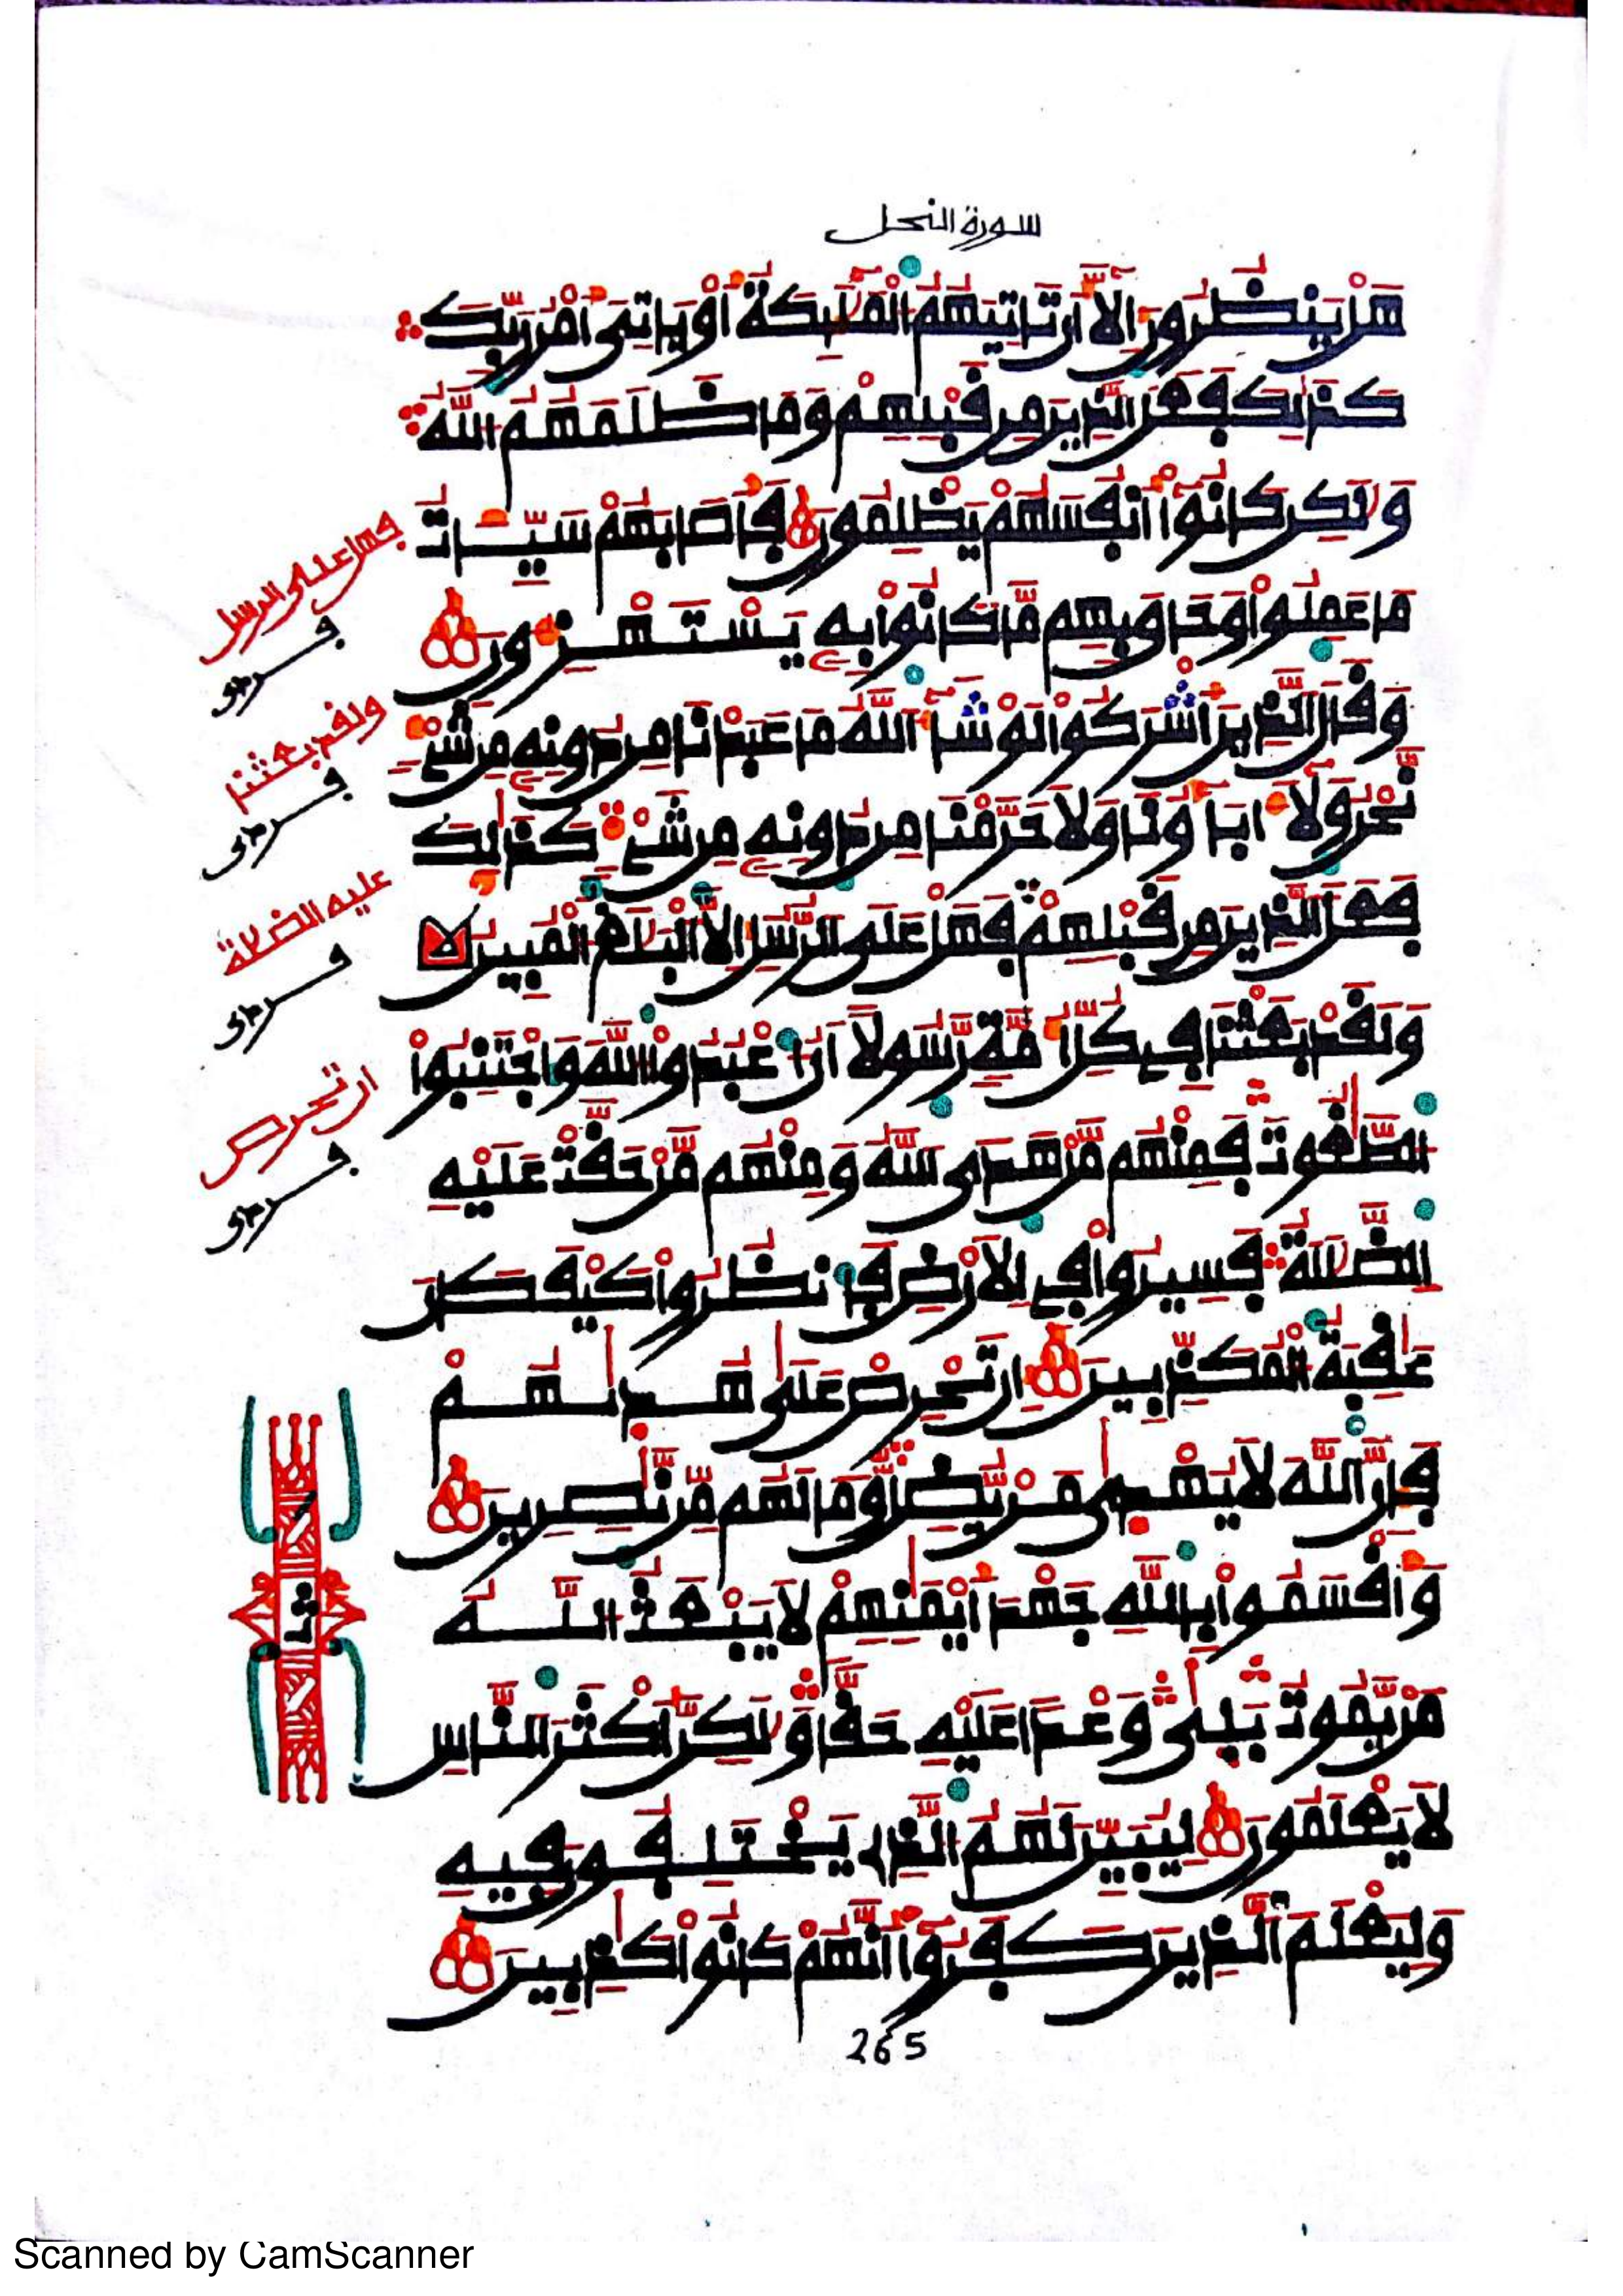 سورة النحل
هَلْ يَنظُرُونَ إِلَّا أَن تَاتِيَهُمُ الْمَلَٰئِكَةُ أَوْ يَاتِيَ أَمْرُ رَبِّكَ
كَذَٰلِكَ فَعَلَ الَّذِينَ مِن قَبْلِهِمْ وَمَا ظَلَمَهُمُ اللَّهُ
وَلَٰكِن كَانُوا أَنفُسَهُمْ يَظْلِمُونَ فَأَصَابَهُمْ سَيِّـَٔاتُ
مَا عَمِلُوا وَحَاقَ بِهِم مَّا كَانُوا بِهِ يَسْتَهْزِءُونَ
وَقَالَ الَّذِينَ أَشْرَكُوا لَوْ شَاءَ اللَّهُ مَا عَبَدْنَا مِن دُونِهِ مِن شَيْءٍ
نَّحْنُ وَلَا ءَابَاؤُنَا وَلَا حَرَّمْنَا مِن دُونِهِ مِن شَيْءٍ كَذَٰلِكَ
فَعَلَ الَّذِينَ مِن قَبْلِهِمْ فَهَلْ عَلَى الرُّسُلِ إِلَّا الْبَلَٰغُ الْمُبِينُ
وَلَقَدْ بَعَثْنَا فِي كُلِّ أُمَّةٍ رَّسُولًا أَنُ اعْبُدُوا اللَّهَ وَاجْتَنِبُوا
الطَّٰغُوتَ فَمِنْهُم مَّنْ هَدَى اللَّهُ وَمِنْهُم مَّنْ حَقَّتْ عَلَيْهِ
الضَّلَٰلَةُ فَسِيرُوا فِي الْأَرْضِ فَانظُرُوا كَيْفَ كَانَ
عَٰقِبَةُ الْمُكَذِّبِينَ إِن تَحْرِصْ عَلَىٰ هُدَىٰهُمْ
فَإِنَّ اللَّهَ لَا يُهْدَىٰ مَنْ يُّضِلُّ وَمَا لَهُم مِّن نَّٰصِرِينَ
وَأَقْسَمُوا بِاللَّهِ جَهْدَ أَيْمَٰنِهِمْ لَا يَبْعَثُ اللَّهُ
مَنْ يَّمُوتُ بَلَىٰ وَعْدًا عَلَيْهِ حَقًّا وَلَٰكِنَّ أَكْثَرَ النَّاسِ
لَا يَعْلَمُونَ لِيُبَيِّنَ لَهُمُ الَّذِي يَخْتَلِفُونَ فِيهِ
وَلِيَعْلَمَ الَّذِينَ كَفَرُوا أَنَّهُمْ كَانُوا كَٰذِبِينَ
265
فهل على الرسل
ولقد بعثنا
عليه الضلالة
إن تحرص
ثمن
Scanned by CamScanner